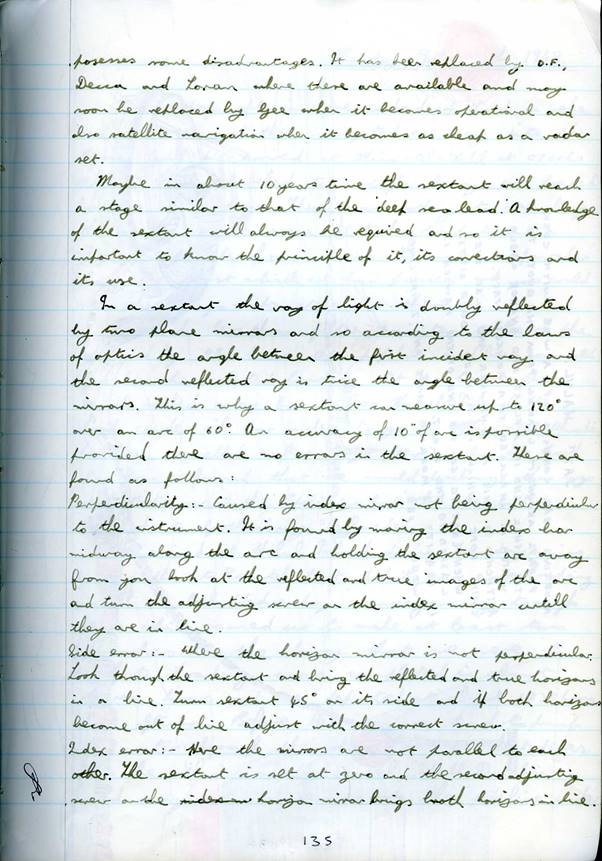 posesses some disadvantages. It has been replaced by D.F.,
Decca and Loran where these are available and may
soon be replaced by Gee when it becomes operational and
also satellite navigation when it becomes as cheap as a radar
set.
Maybe in about 10 years time the sextant will reach
a stage similar to that of the 'deep sea lead'. A knowledge
of the sextant will always be required and so it is
important to know the principle of it, its corrections and
its use.
In a sextant the ray of light is doubly reflected
by two plane mirrors and so according to the laws
of optics the angle between the first incident ray and
the second reflected ray is twice the angle between the
mirrors. This is why a sextant can measure up to 120°
over an arc of 60°. An accuracy of 10" of arc is possible
provided there are no errors in the sextant. These are
found as follows:
Perpendicularity:- Caused by index mirror not being perpendicular
to the instrument. It is found by moving the index bar
midway along the arc and holding the sextant arc away
from you look at the reflected and true images of the arc
and turn the adjusting screw on the index mirror untill
they are in line.
Side error:- Where the horizon mirror is not perpendicular.
Look though the sextant and bring the reflected and true horizons
in a line. Turn sextant 45° on its side and if both horizons
become out of line adjust with the correct screw.
Index error:- Here the mirrors are not parallel to each
other. The sextant is set at zero and the second adjusting
screw on the horizon mirror brings both horizons in line.
135